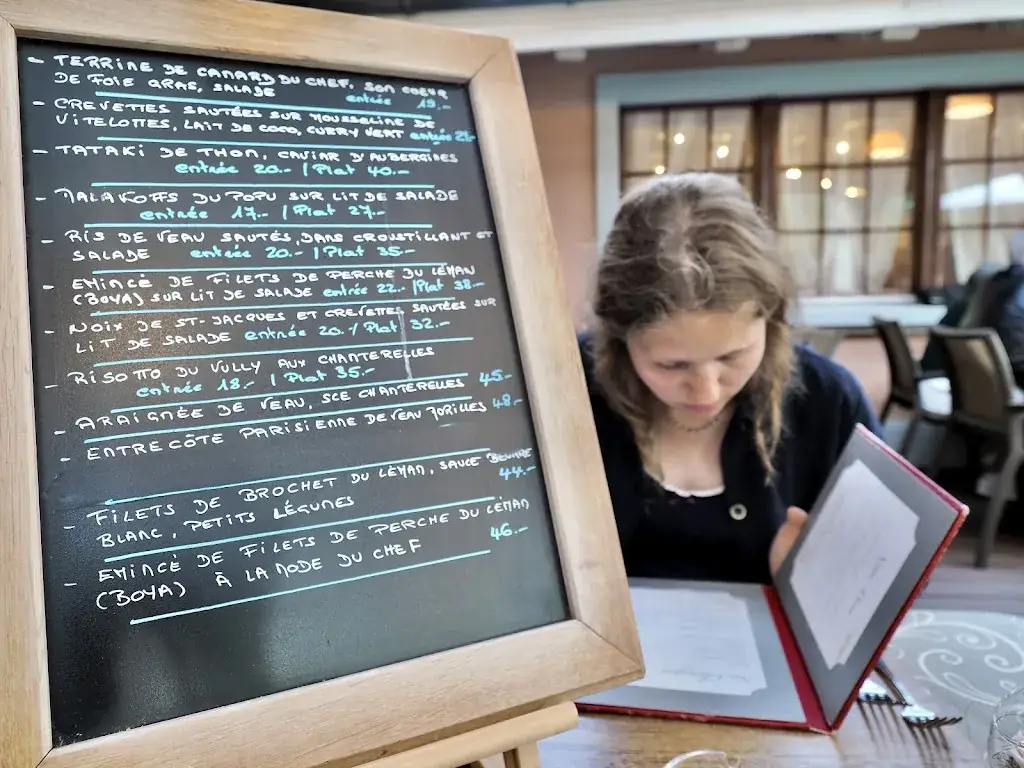 - TERRINE DE CANARD DU CHEF, SON COEUR
DE FOIE GRAS, SALADE entrée 19.-
- CREVETTES SAUTÉES SUR MOUSSELINE DE
VITELOTTES, LAIT DE COCO, CURRY VERT entrée 21.-
- TATAKI DE THON, CAVIAR D'AUBERGINES
entrée 20.- / Plat 40.-
- MALAKOFFS DU POPU SUR LIT DE SALADE
entrée 17.- / Plat 27.-
- RIS DE VEAU SAUTÉS, DANS CROUSTILLANT ET
SALADE entrée 20.- / Plat 35.-
- EMINCÉ DE FILETS DE PERCHE DU LÉMAN
(BOYA) SUR LIT DE SALADE entrée 22.- / Plat 38.-
- NOIX DE ST-JACQUES ET CREVETTES SAUTÉES SUR
LIT DE SALADE entrée 20.- / Plat 32.-
- RISOTTO DU VULLY AUX CHANTERELLES
entrée 18.- / Plat 35.-
- ARAIGNÉE DE VEAU, SCE CHANTERELLES 45.-
- ENTRECÔTE PARISIENNE DE VEAU MORILLES 48.-
- FILETS DE BROCHET DU LÉMAN, SAUCE BEURRE
BLANC, PETITS LÉGUMES 44.-
- EMINCÉ DE FILETS DE PERCHE DU LÉMAN
(BOYA) À LA MODE DU CHEF 46.-